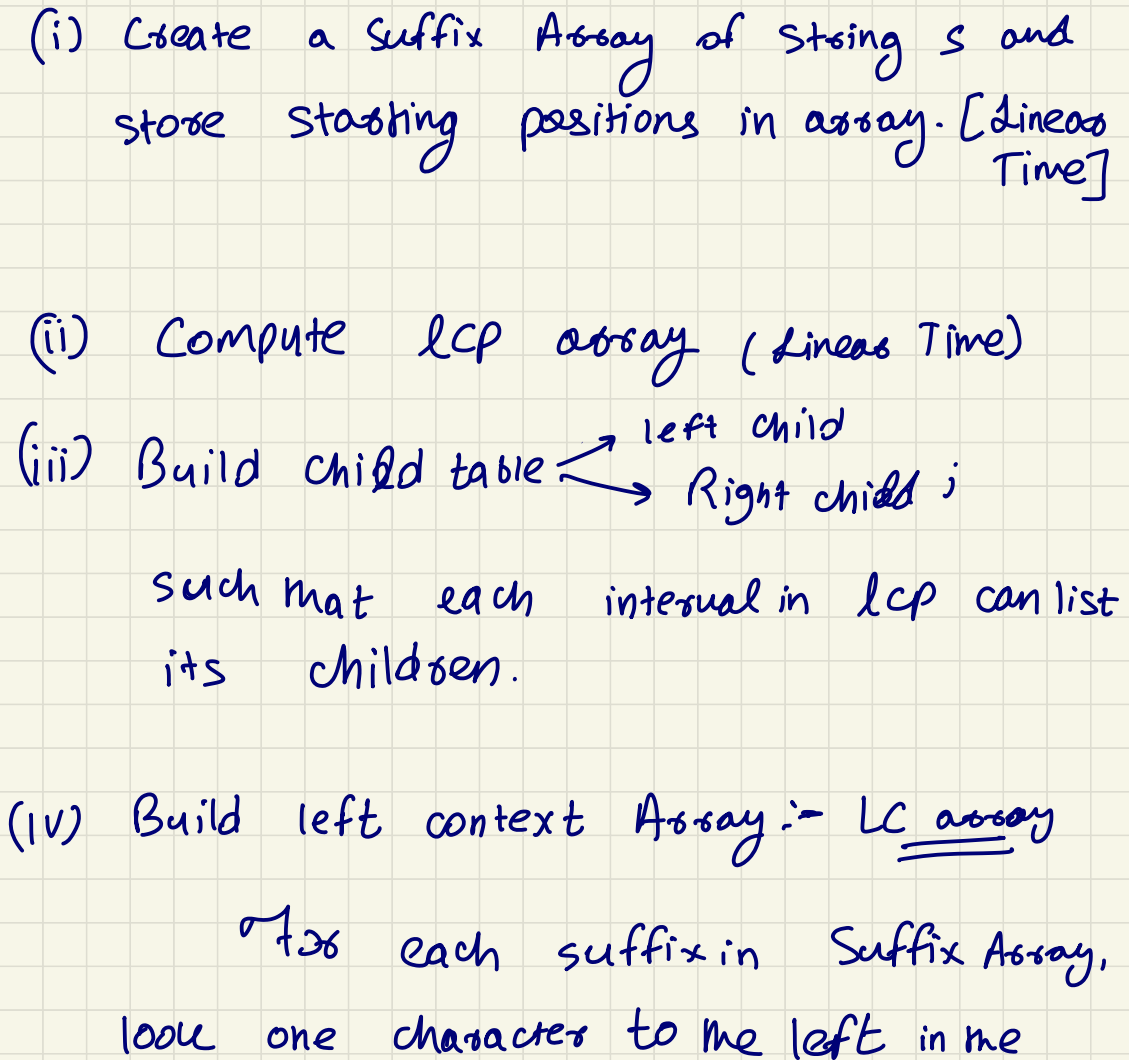 (i) Create a Suffix Array of string s and
store starting positions in array. [Linear
Time]
(ii) Compute lcp array (Linear Time)
(iii) Build child table → left child
→ Right child ;
such that each interval in lcp can list
its children.
(iv) Build left context Array :- LC array
For each suffix in Suffix Array,
look one character to the left in the